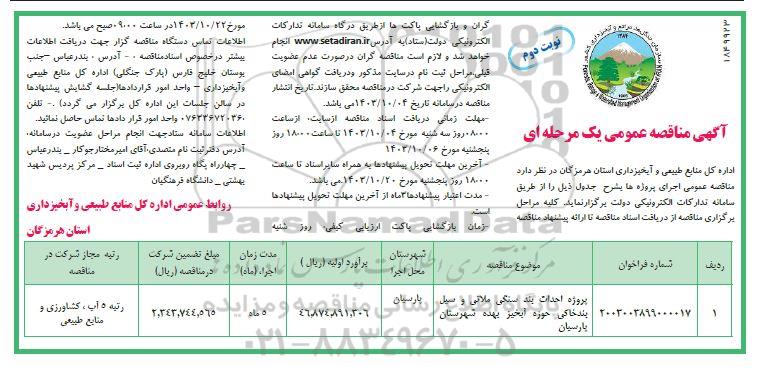 ۱۸۴۹۹۲۳
نوبت دوم
آگهی مناقصه عمومی یک مرحله ای
اداره کل منابع طبیعی و آبخیزداری استان هرمزگان در نظر دارد
مناقصه عمومی اجرای پروژه ها بشرح جدول ذیل را از طریق
سامانه تدارکات الکترونیکی دولت برگزارنماید. کلیه مراحل
برگزاری مناقصه از دریافت اسناد مناقصه تا ارائه پیشنهاد مناقصه
گران و بازگشایی پاکت ها ازطریق درگاه سامانه تدارکات
الکترونیکی دولت(ستاد)به آدرس www.setadiran.ir انجام
خواهد شد و لازم است مناقصه گران درصورت عدم عضویت
قبلی،مراحل ثبت نام درسایت مذکور ودریافت گواهی امضای
الکترونیکی راجهت شرکت درمناقصه محقق سازند.تاریخ انتشار
مناقصه درسامانه تاریخ ۱۴۰۳/۱۰/۰۴می باشد.
-مهلت زمانی دریافت اسناد مناقصه ازسایت: ازساعت
۰۸:۰۰روز سه شنبه مورخ ۱۴۰۳/۱۰/۰۴ تا ساعت ۱۸:۰۰ روز
پنجشنبه مورخ ۱۴۰۳/۱۰/۰۶
- آخرین مهلت تحویل پیشنهادها به همراه سایراسناد تا ساعت
۱۸:۰۰ روز پنجشنبه مورخ ۱۴۰۳/۱۰/۲۰ می باشد.
- مدت اعتبار پیشنهادها۳ماه از آخرین مهلت تحویل پیشنهادها
است.
-زمان بازگشایی پاکت ارزیابی کیفی، روز شنبه
مورخ۱۴۰۳/۱۰/۲۲در ساعت ۰۹:۰۰صبح می باشد.
اطلاعات تماس دستگاه مناقصه گزار جهت دریافت اطلاعات
بیشتر درخصوص اسنادمناقصه ۰۰ آدرس ۰ بندرعباس –جنب
بوستان خلیج فارس (پارک جنگلی) اداره کل منابع طبیعی
وآبخیزداری – واحد امور قراردادها(جلسه گشایش پیشنهادها
در سالن جلسات این اداره کل برگزار می گردد) .- تلفن
۰۷۶۳۳۶۷۲۰۳۶۰ واحد امور قرار دادها تماس حاصل نمائید.
اطلاعات سامانه ستادجهت انجام مراحل عضویت درسامانه:
آدرس دفترثبت نام متصدی،آقای امیرمختارجوکار _ بندرعباس
_ چهارراه یگاه روبروی اداره ثبت اسناد _ مرکز پردیس شهید
بهشتی _ دانشگاه فرهنگیان
روابط عمومی اداره کل منابع طبیعی وآبخیزداری
استان هرمزگان
ردیف | شماره فراخوان | موضوع مناقصه | شهرستان محل اجرا | برآورد اولیه (ریال) | مدت زمان اجراء (ماه) | مبلغ تضمین شرکت درمناقصه (ریال) | رتبه مجاز شرکت در مناقصه
۱ | ۲۰۰۳۰۰۳۸۹۹۰۰۰۰۱۷ | پروژه احداث بند سنگی ملاتی و سیل بندخاکی حوزه آبخیز بهده شهرستان پارسیان | پارسیان | ۴۶,۸۷۴,۸۹۱,۳۰۶ | ۵ ماه | ۲,۳۴۳,۷۴۴,۵۶۵ | رتبه ۵ آب ، کشاورزی و منابع طبیعی
ParsNamadData
۰۲۱-۸۸۳۴۹۶۷۰-۵